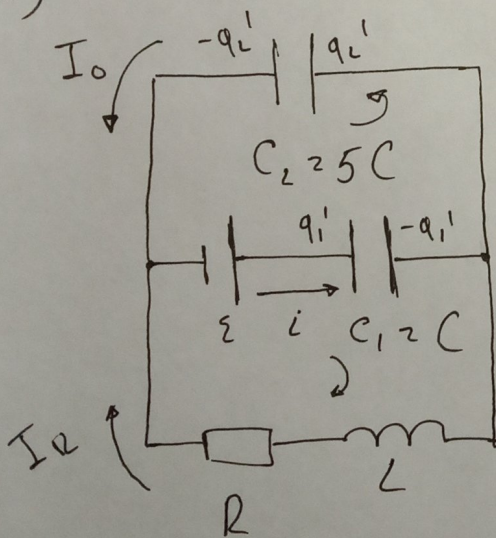 )
I₀ -q₂' q₂'
C₂ = 5C
q₁' -q₁'
ε i C₁ = C
I_R
R L